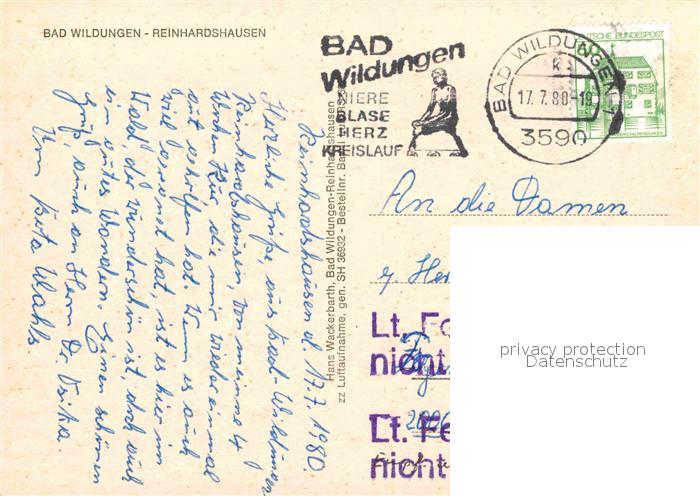 BAD WILDUNGEN - REINHARDSHAUSEN
BAD
Wildungen
NIERE
BLASE
HERZ
KREISLAUF
BAD WILDUNGEN 1
k
17.7.80-19
3590
DEUTSCHE BUNDESPOST
Reinhardshausen d. 17.7.1980.
Herzliche Grüße, aus Bad-Wildungen
Reinhardshausen, von meiner 4
Wochen Kur die mir wieder einmal
gut geholfen hat. Wenn es auch
viel geregnet hat, ist es hier im
Wald, der wunderschön ist, doch auch
ein gutes Wandern. Einen schönen
Gruß auch an Herrn Dr.
Ihre Wahls.
Hans Wackerbarth, Bad Wildungen-Reinhardshausen
zz Luftaufnahme, gen. SH 36932 - Bestellnr.
An die Damen
Lt. Fe
nicht
Lt. Fe
nicht
privacy protection
Datenschutz